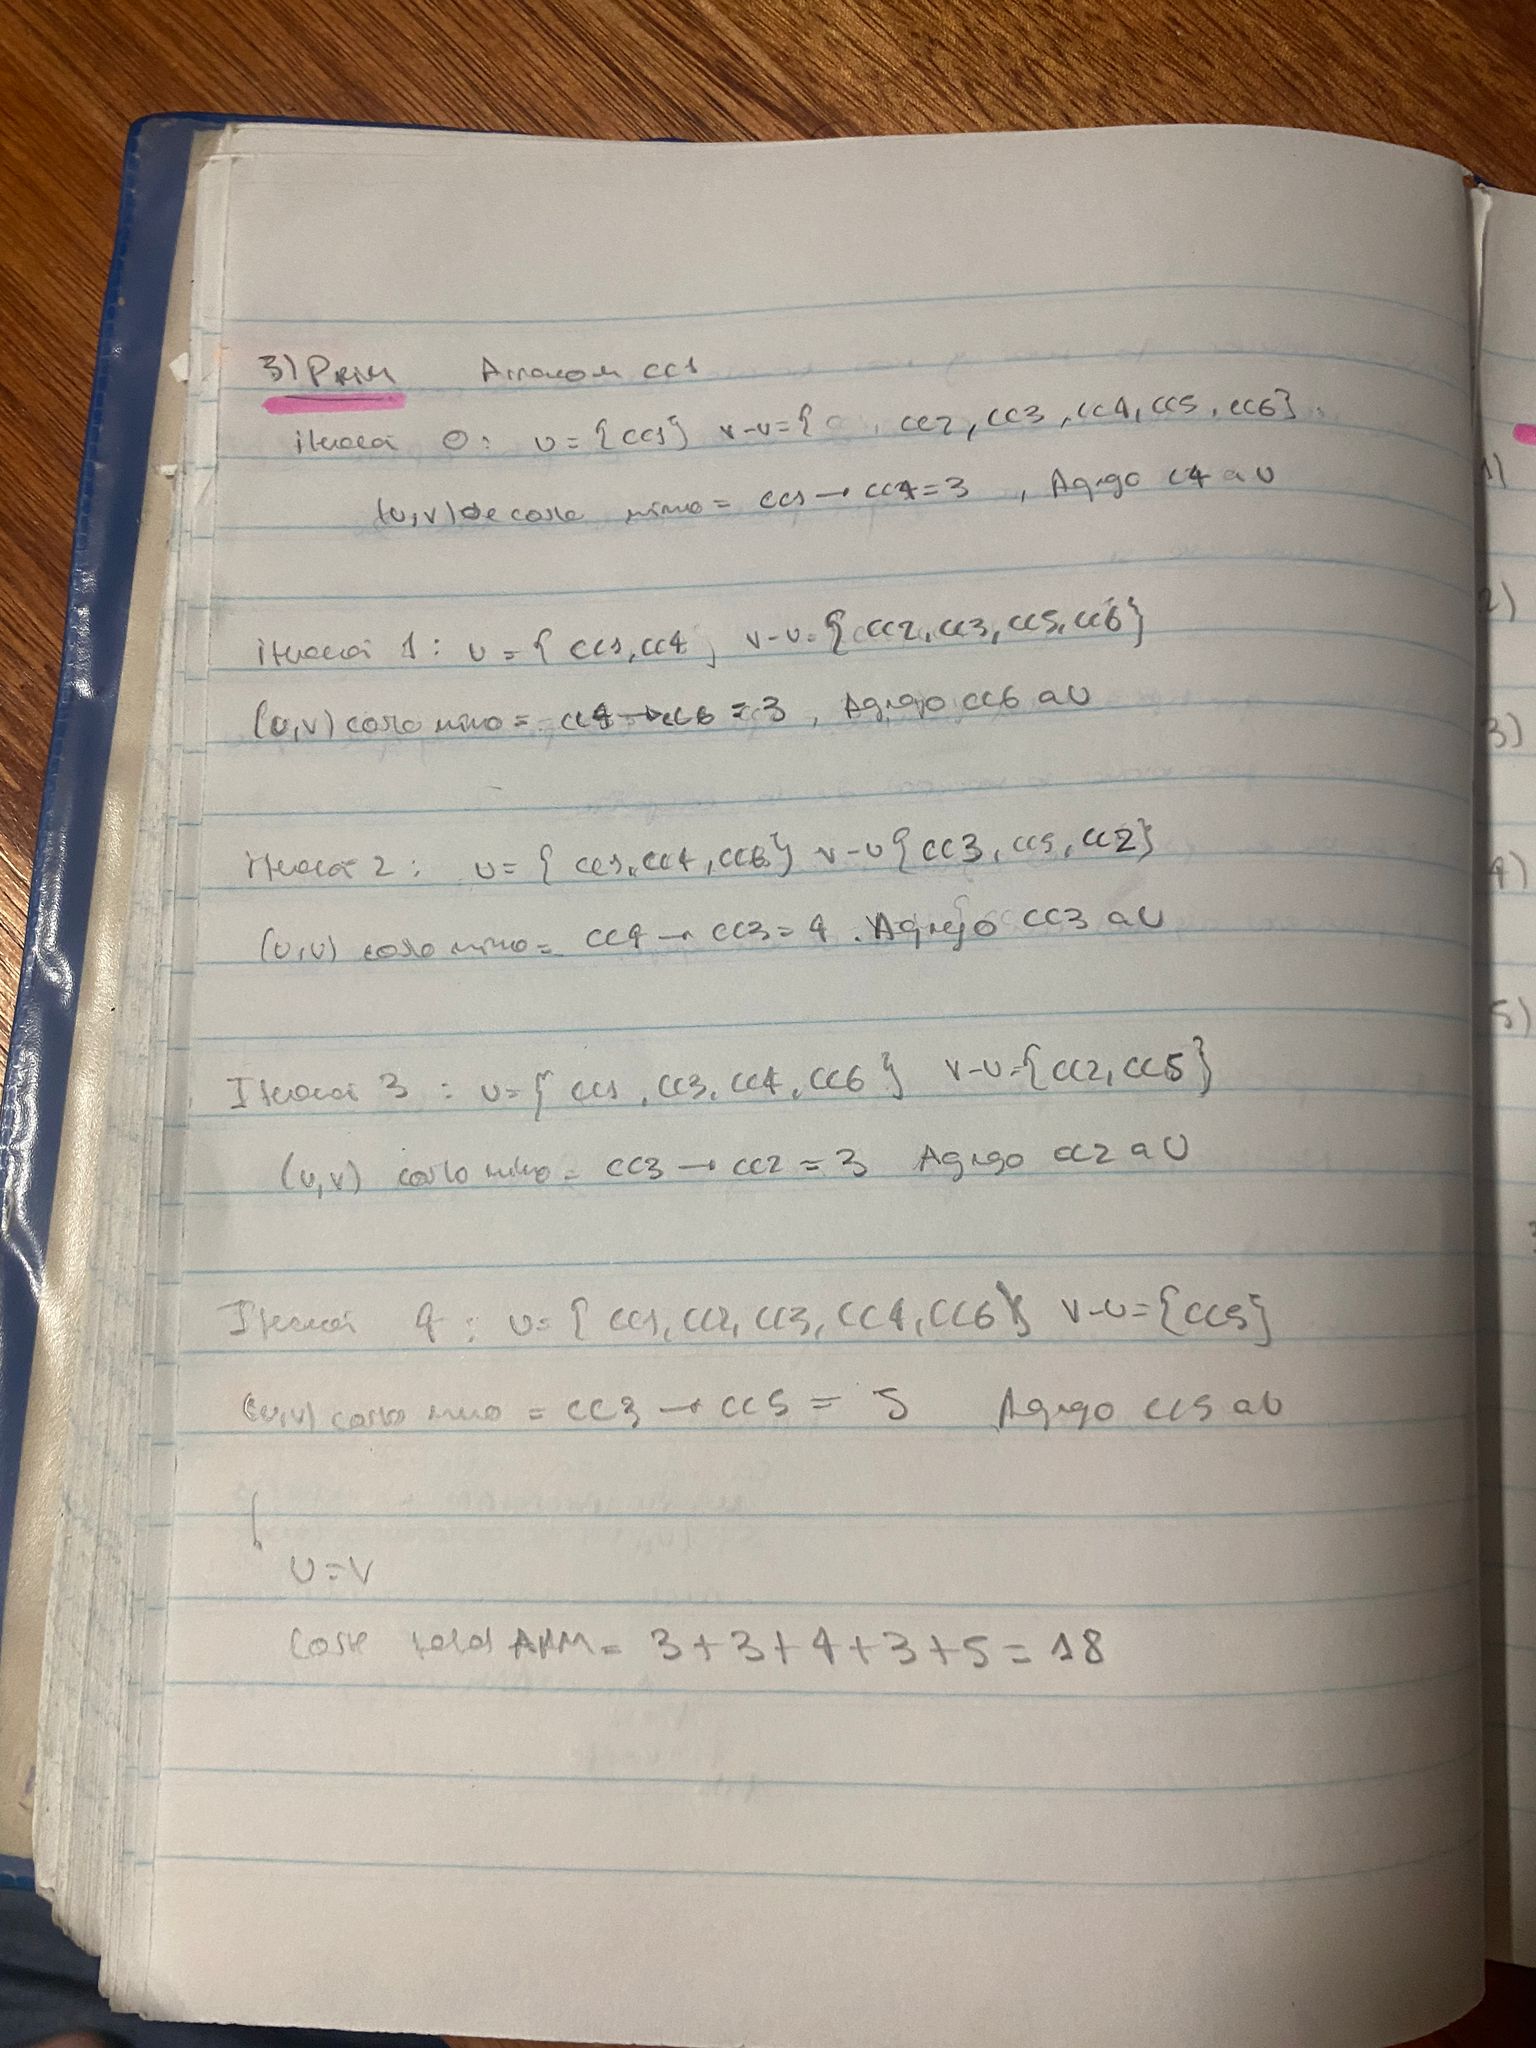 3) Prim Arranco en cc1
iteracion 0: U = {cc1} V-U = { cc2, cc3, cc4, cc5, cc6}.
(u,v) de coste minimo = cc1 → cc4 = 3, Agrego c4 a U
iteracion 1: U = { cc1, cc4 } V-U = {cc2, cc3, cc5, cc6}
(u,v) costo minimo = cc4 → cc6 = 3, Agrego cc6 a U
iteracion 2: U = { cc1, cc4, cc6} V-U {cc3, cc5, cc2}
(u,v) costo minimo = cc4 → cc3 = 4. Agrego cc3 a U
Iteracion 3: U = { cc1, cc3, cc4, cc6 } V-U = {cc2, cc5}
(u,v) costo minimo = cc3 → cc2 = 3 Agrego cc2 a U
Iteracion 4: U = { cc1, cc2, cc3, cc4, cc6} V-U = {cc5}
(u,v) costo minimo = cc3 → cc5 = 5 Agrego cc5 a U
U = V
Coste total AAM = 3 + 3 + 4 + 3 + 5 = 18
1)
2)
3)
4)
5)